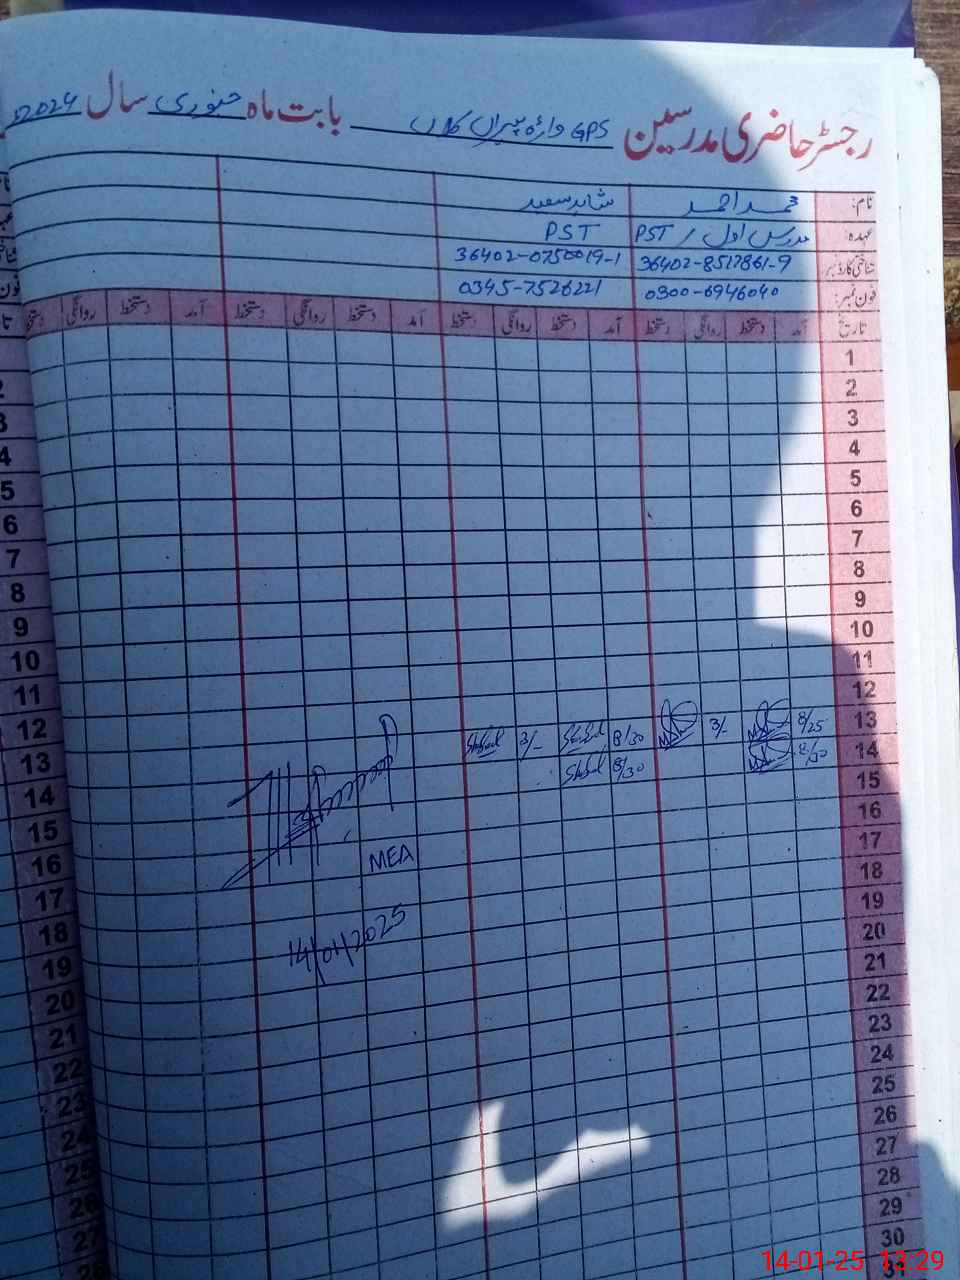 رجسٹر حاضری مدرسین GPS واڑہ پیراں کلاں بابت ماہ جنوری سال 2024
نام: محمد احمد شاہد سعید
عہدہ: مدرس اول / PST PST
شناختی کارڈ نمبر 36402-8517861-9 36402-0750019-1
فون نمبر: 0300-6946040 0345-7526221
تاریخ آمد دستخط روانگی دستخط آمد دستخط روانگی دستخط آمد دستخط روانگی دستخط آمد دستخط روانگی دستخط
1
2
3
4
5
6
7
8
9
10
11
12
13 8/25 3/- 8/30 Shahid 3/- Shahid
14 8/30 8/30 Shahid
15
16
17
MEA
18
19
20
14/01/2025
21
22
23
24
25
26
27
28
29
30
2
3
4
5
6
7
8
9
10
11
12
13
14
15
16
17
18
19
20
21
22
23
24
25
26
27
14-01-25 13:29